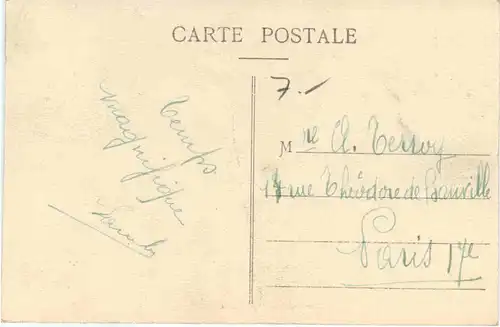 CARTE POSTALE
7.-
temps
magnifique
Mme A. Terroy
17 rue Théodore de Banville
Paris 17e